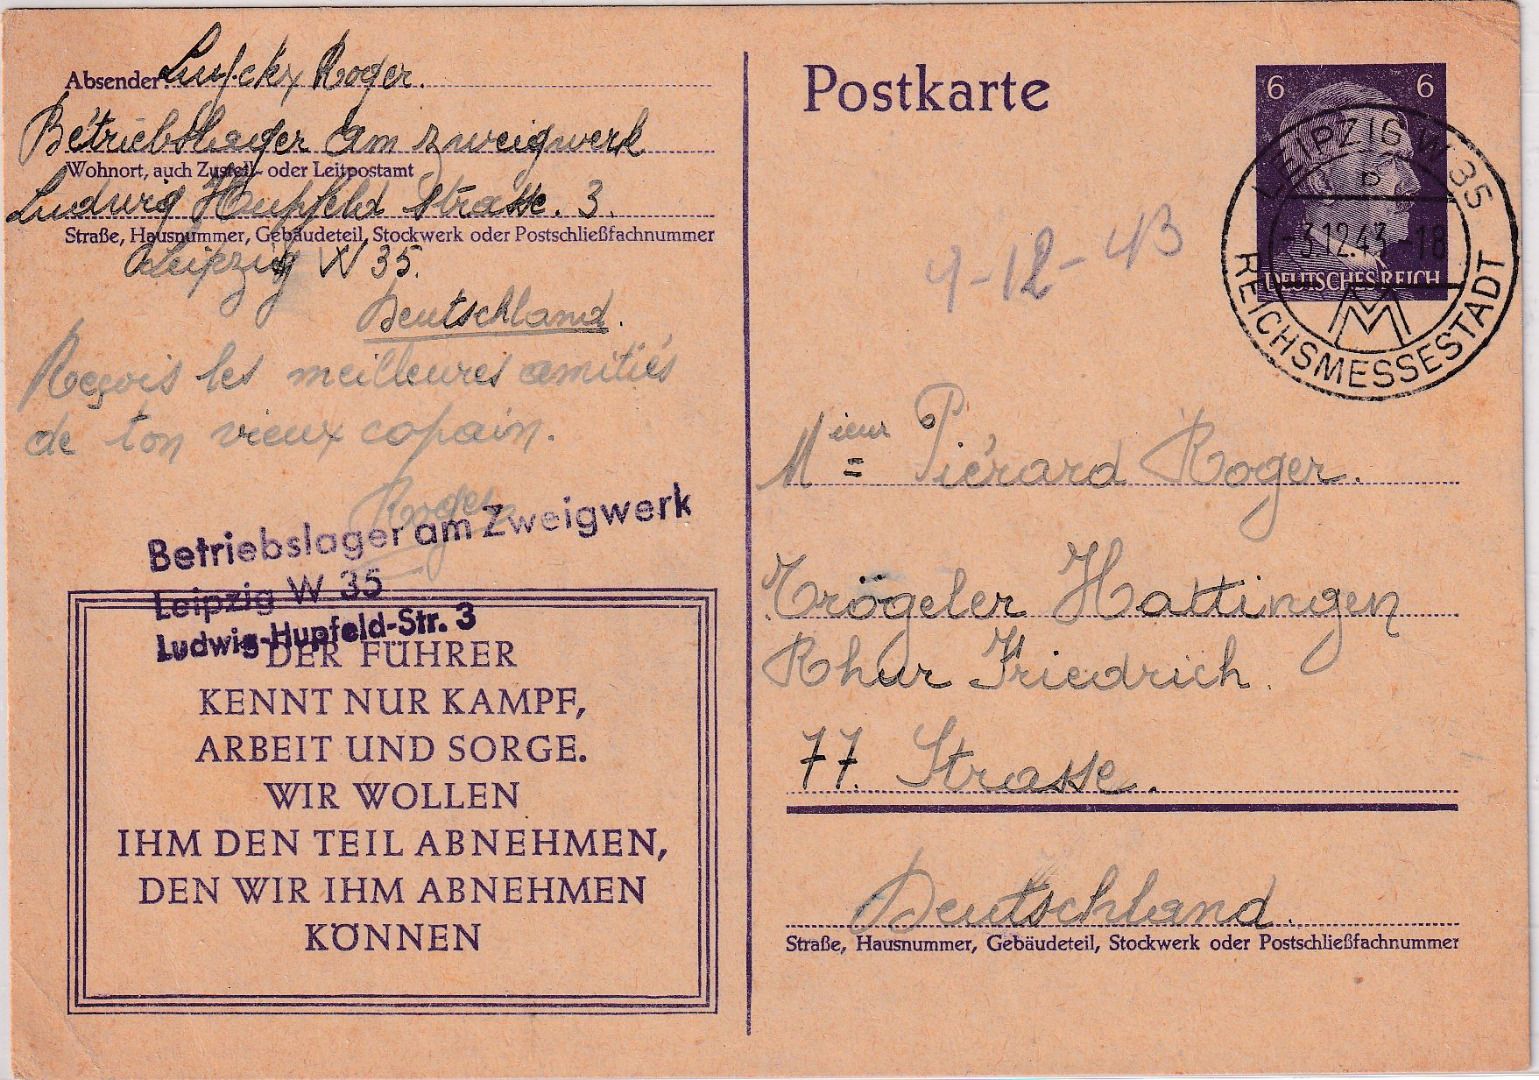 Absender: Luyckx Roger.
Betriebslager am zweigwerk
Wohnort, auch Zustell- oder Leitpostamt
Ludwig Hupfeld Strasse. 3.
Straße, Hausnummer, Gebäudeteil, Stockwerk oder Postschließfachnummer
Leipzig W 35.
Deutschland.
Reçois les meilleures amitiés
de ton vieux copain.
Roger
Betriebslager am Zweigwerk
Leipzig W 35
Ludwig-Hupfeld-Str. 3
DER FÜHRER
KENNT NUR KAMPF,
ARBEIT UND SORGE.
WIR WOLLEN
IHM DEN TEIL ABNEHMEN,
DEN WIR IHM ABNEHMEN
KÖNNEN
Postkarte
6 6
DEUTSCHES REICH
LEIPZIG W 35
b
-3.12.43.-18
REICHSMESSESTADT
M
9-12-43
Mieur Piérard Roger.
Trögeler Hattingen
Rhur Friedrich.
77. Strasse.
Deutschland.
Straße, Hausnummer, Gebäudeteil, Stockwerk oder Postschließfachnummer